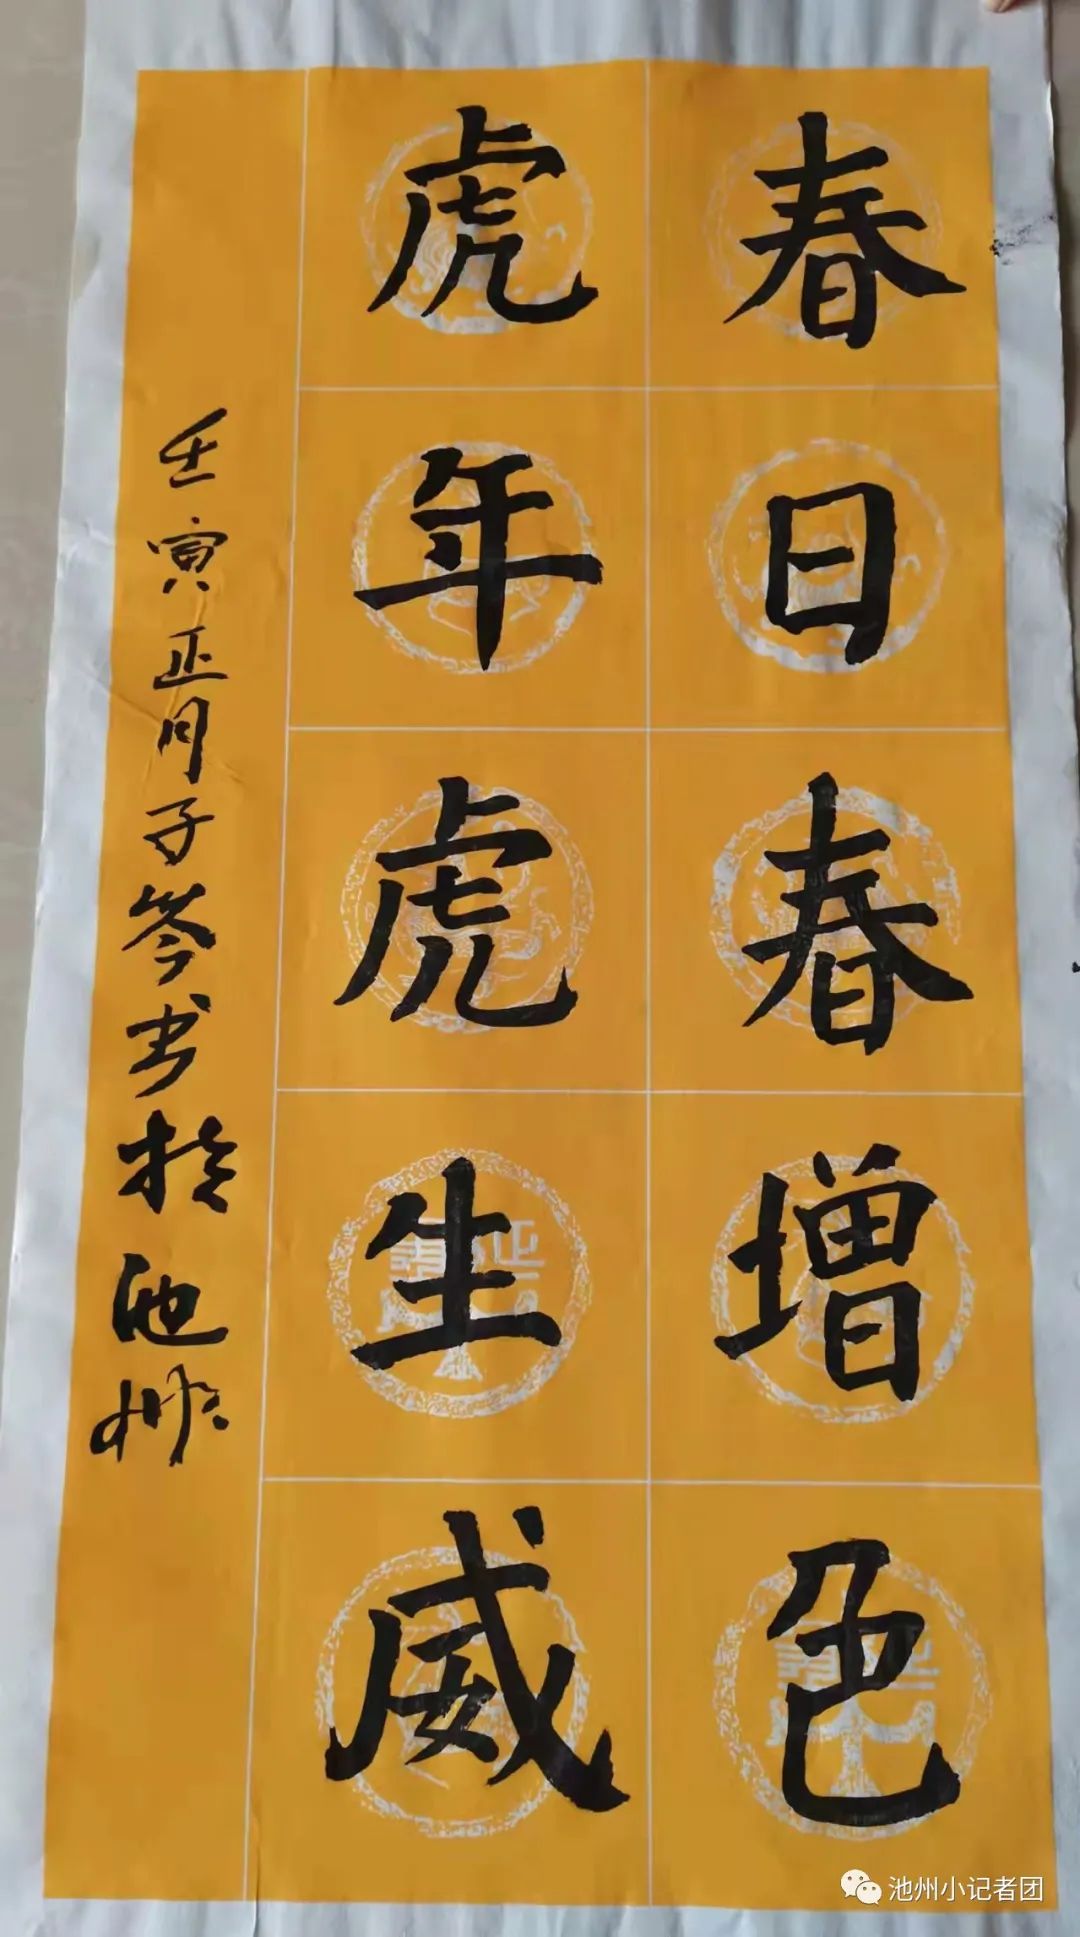 春日春增色
虎年虎生威
壬寅正月子岑书於池州
池州小记者团